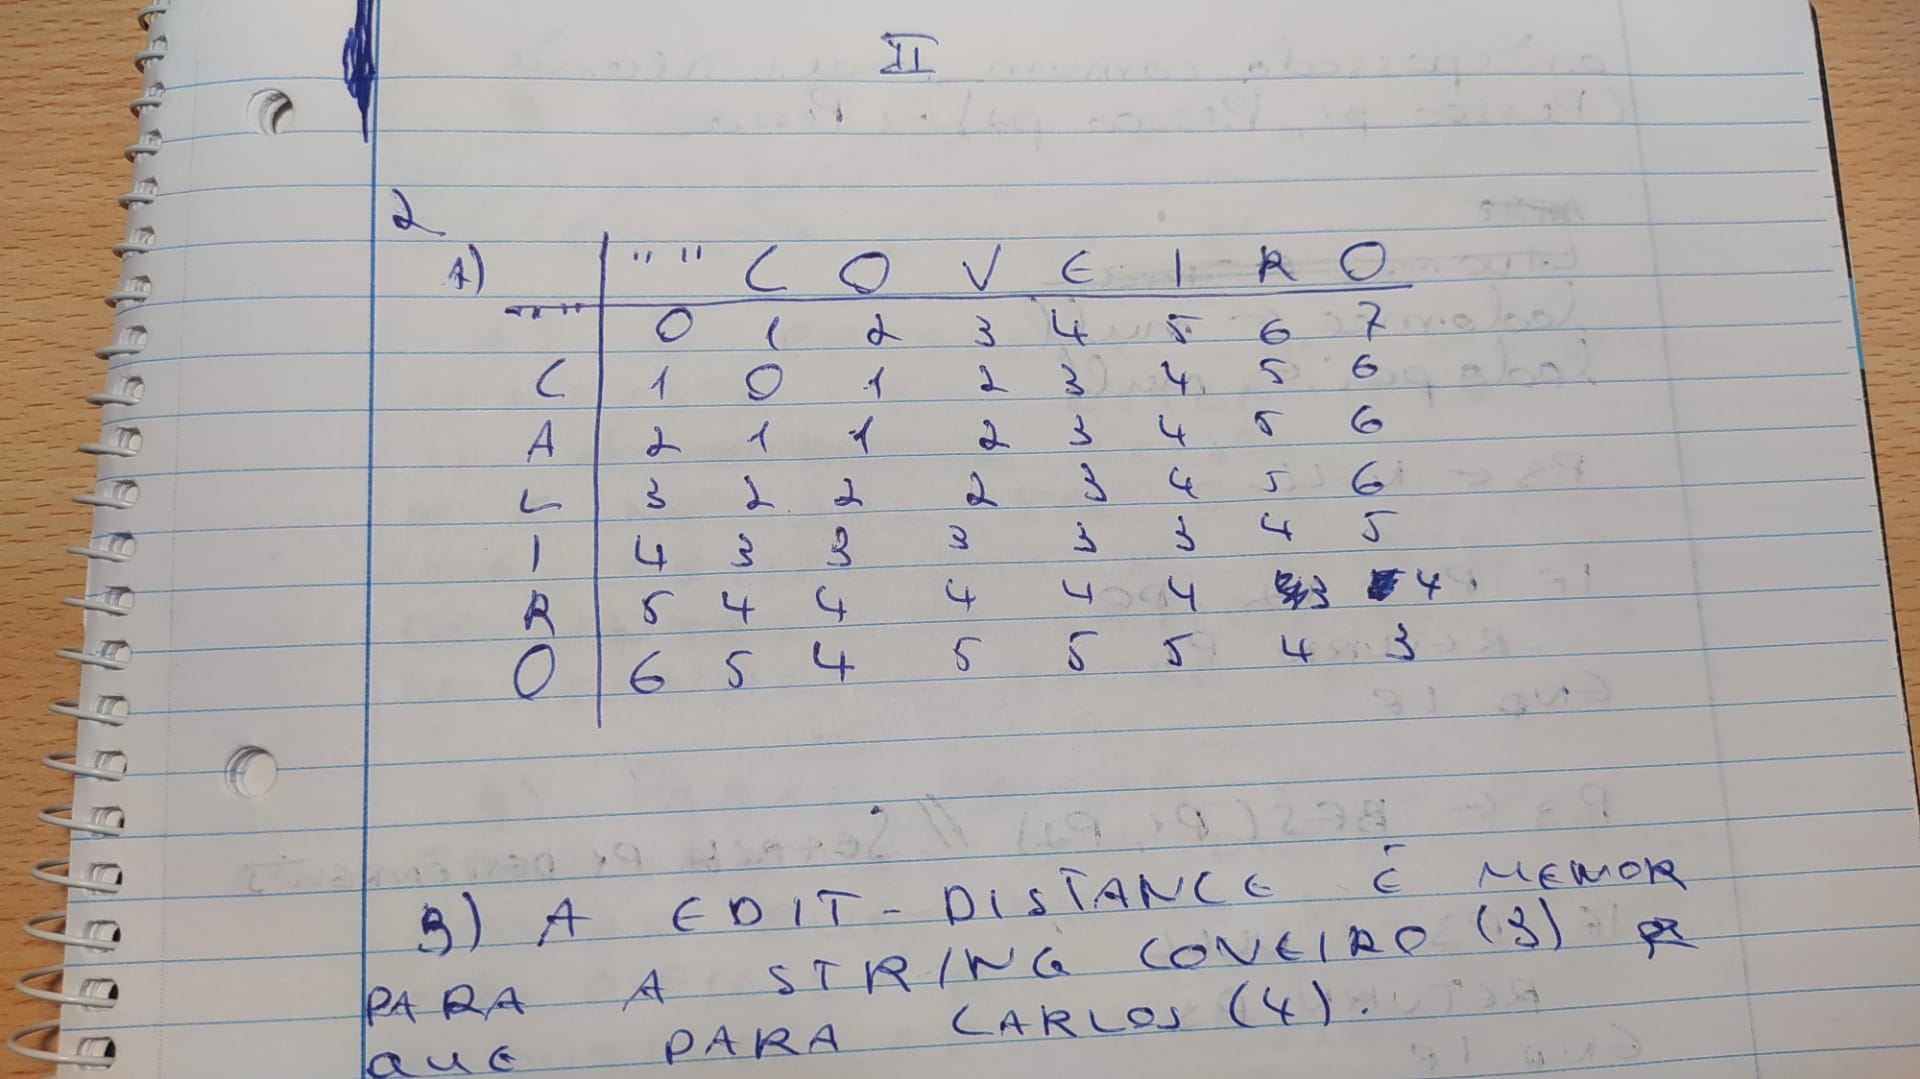 II
2
1) " " C O V E I R O
" " 0 1 2 3 4 5 6 7
C 1 0 1 2 3 4 5 6
A 2 1 1 2 3 4 5 6
L 3 2 2 2 3 4 5 6
I 4 3 3 3 3 3 4 5
R 5 4 4 4 4 4 3 4
O 6 5 4 5 5 5 4 3
3) A EDIT-DISTANCE É MENOR
PARA A STRING COVEIRO (3)
QUE PARA CARLOS (4).